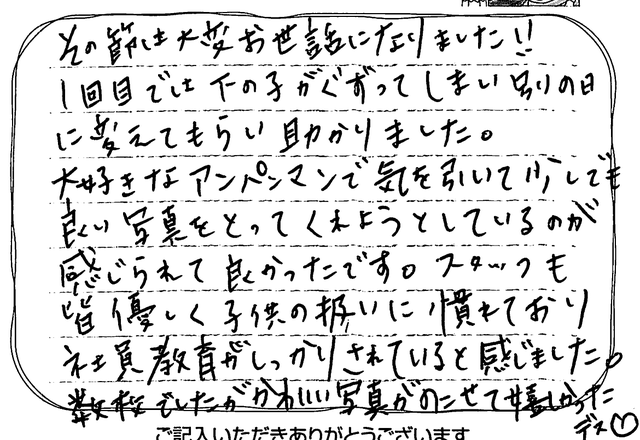 その節は大変お世話になりました!!
1回目では下の子がぐずってしまい別の日
に変えてもらい助かりました。
大好きなアンパンマンで気を引いて少しでも
良い写真をとってくれようとしているのが
感じられて良かったです。スタッフも
皆優しく子供の扱いに慣れており
社員教育がしっかりされていると感じました。
数枚でしたがかわいい写真がのこせて嬉しかった
デス♡
ご記入いただきありがとうございます